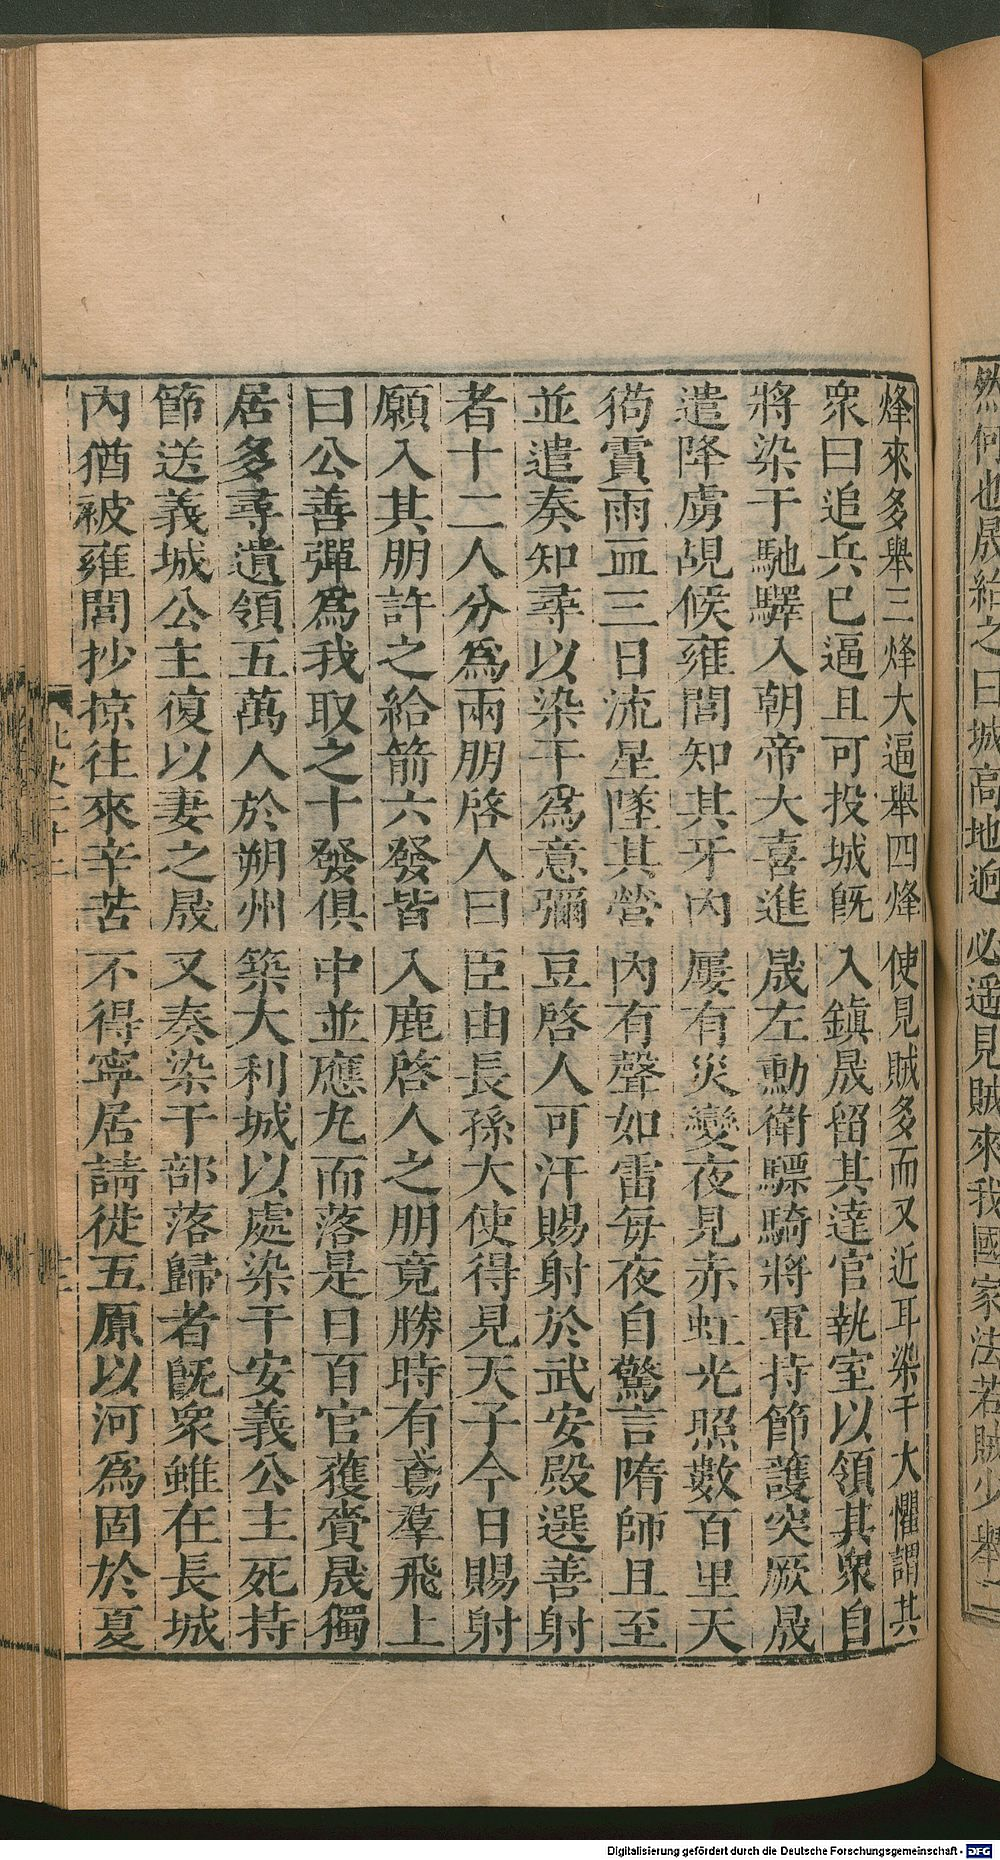 然何也晟紿之曰城高地迥必遥見賊來我國家法若賊少舉二
烽來多舉三烽大逼舉四烽使見賊多而又近耳染干大懼謂其
衆曰追兵已逼且可投城旣入鎮晟留其達官執室以領其衆自
將染干馳驛入朝帝大喜進晟左勳衛驃騎將軍持節護突厥晟
遣降虜覘候雍閭知其牙内屢有災變夜見赤虹光照數百里天
狗霣雨血三日流星墜其營内有聲如雷每夜自驚言隋師且至
並遣奏知尋以染干爲意彌豆啓人可汗賜射於武安殿選善射
者十二人分爲兩朋啓人曰臣由長孫大使得見天子今日賜射
願入其朋許之給箭六發皆入鹿啓人之朋竟勝時有鳶羣飛上
曰公善彈爲我取之十發俱中並應丸而落是日百官獲賚晟獨
居多尋遺領五萬人於朔州築大利城以處染干安義公主死持
節送義城公主復以妻之晟又奏染干部落歸者旣衆雖在長城
内猶被雍閭抄掠往來辛苦不得寧居請徙五原以河爲固於夏
北史二十二
Digitalisierung gefördert durch die Deutsche Forschungsgemeinschaft - DFG